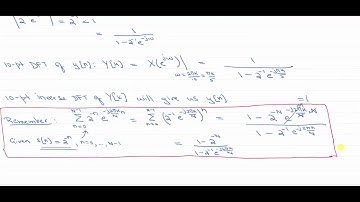 |2 e | = 2⁻¹ = 1
= 1 / (1 - 2⁻¹ e^{-jω})
10-pt DFT of y[n]: Y[k] = X(e^{jω})| ω = 2πk/10 = πk/5 = 1 / (1 - 2⁻¹ e^{-jπk/5})
10-pt inverse DFT of Y[k] will give us y[n]
Remember: Σ_{n=0}^{N-1} 2⁻ⁿ e^{-j2πkn/N} = Σ_{n=0}^{N-1} (2⁻¹ e^{-j2πk/N})ⁿ = (1 - 2^{-N} e^{-j2πk/N·N}) / (1 - 2⁻¹ e^{-j2πk/N})
Given s[n] = 2⁻ⁿ, n=0,..., N-1 = (1 - 2^{-N}) / (1 - 2⁻¹ e^{-j2πk/N})